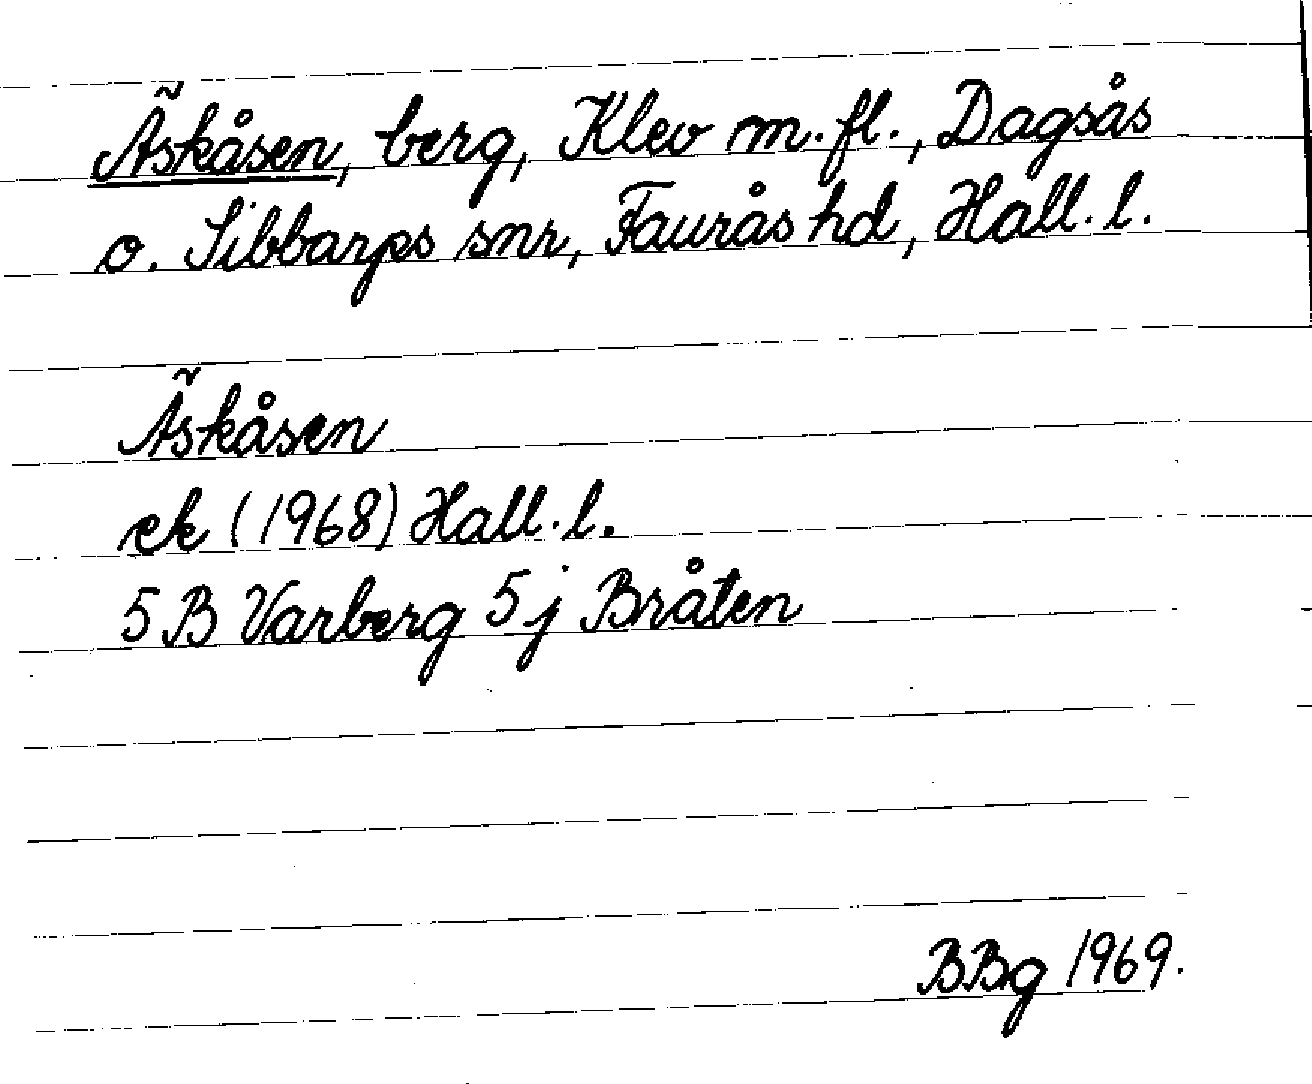 Äskåsen, berg, Klev m.fl., Dagsås
o. Sibbarps snr, Faurås hd, Hall. l.
Äskåsen
ek (1968) Hall. l.
5B Varberg 5j Bråten
BBg 1969.